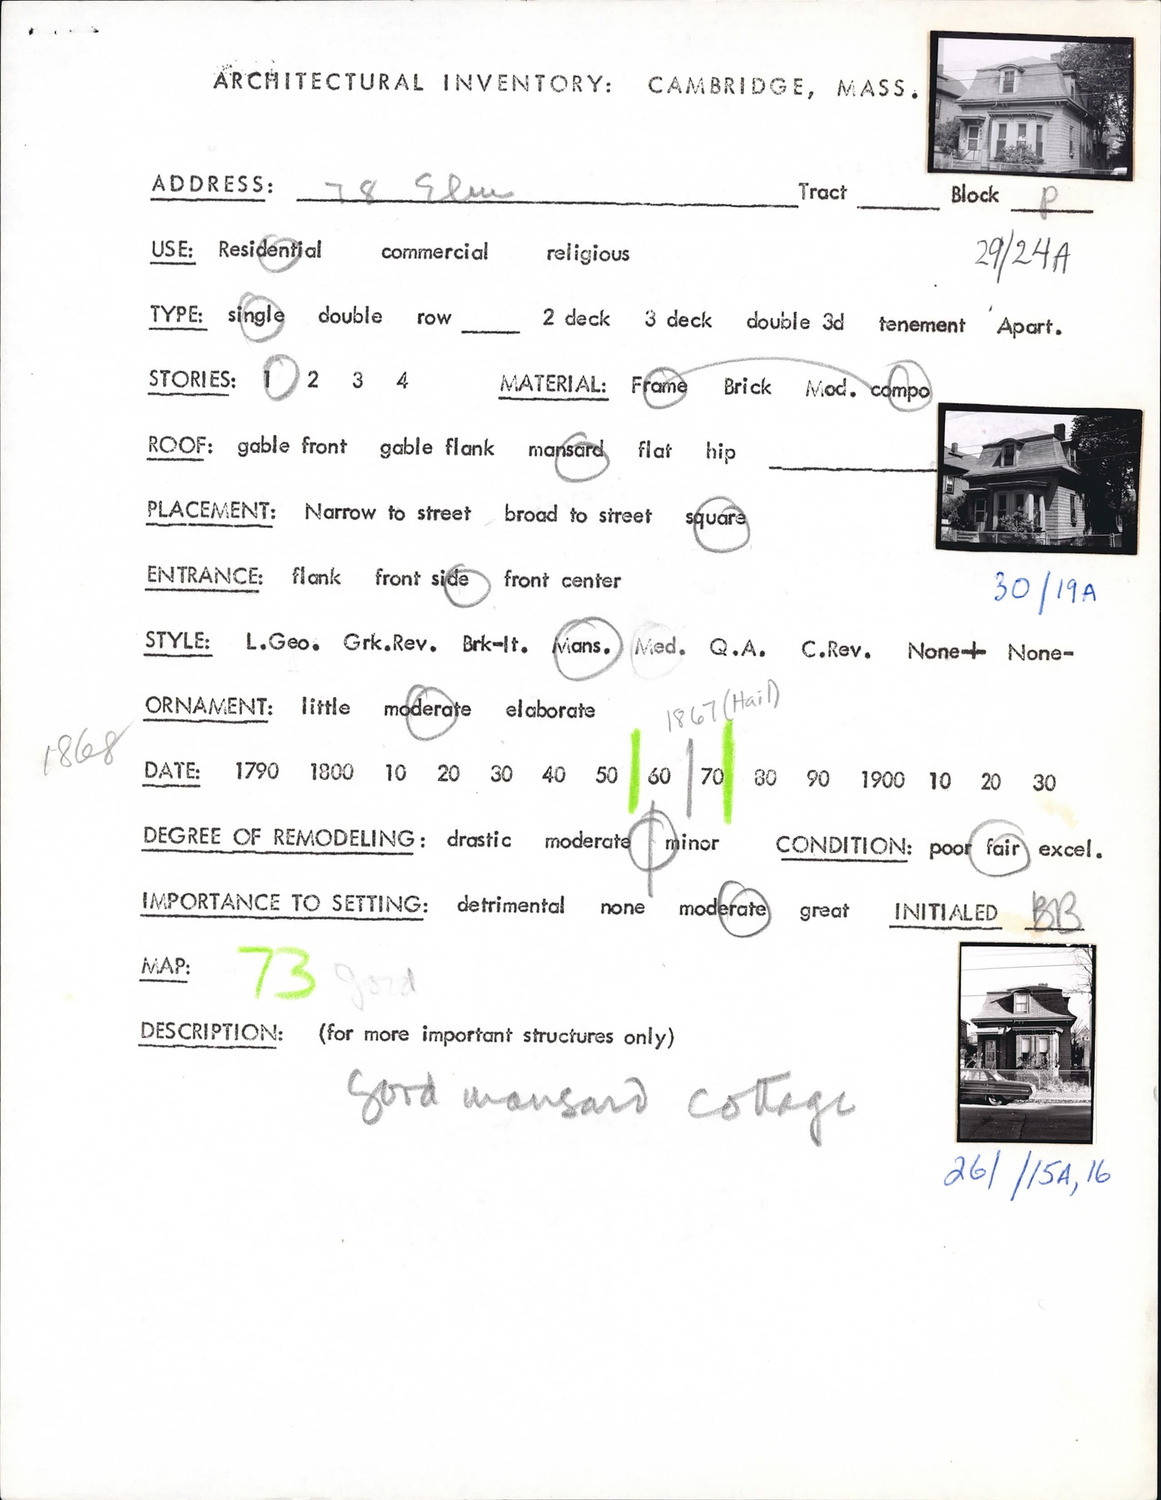 ARCHITECTURAL INVENTORY: CAMBRIDGE, MASS.
ADDRESS: 78 Elm Tract Block P
USE: Residential commercial religious
29/24A
TYPE: single double row 2 deck 3 deck double 3d tenement Apart.
STORIES: 1 2 3 4 MATERIAL: Frame Brick Mod. compo
ROOF: gable front gable flank mansard flat hip
PLACEMENT: Narrow to street broad to street square
ENTRANCE: flank front side front center
30/19A
STYLE: L.Geo. Grk.Rev. Brk-It. Mans. Med. Q.A. C.Rev. None+ None-
ORNAMENT: little moderate elaborate
1867 (Hail)
1868
DATE: 1790 1800 10 20 30 40 50 60 70 80 90 1900 10 20 30
DEGREE OF REMODELING: drastic moderate minor CONDITION: poor fair excel.
IMPORTANCE TO SETTING: detrimental none moderate great INITIALED BB
MAP: 73 good
DESCRIPTION: (for more important structures only)
Good mansard cottage
26/ /15A, 16